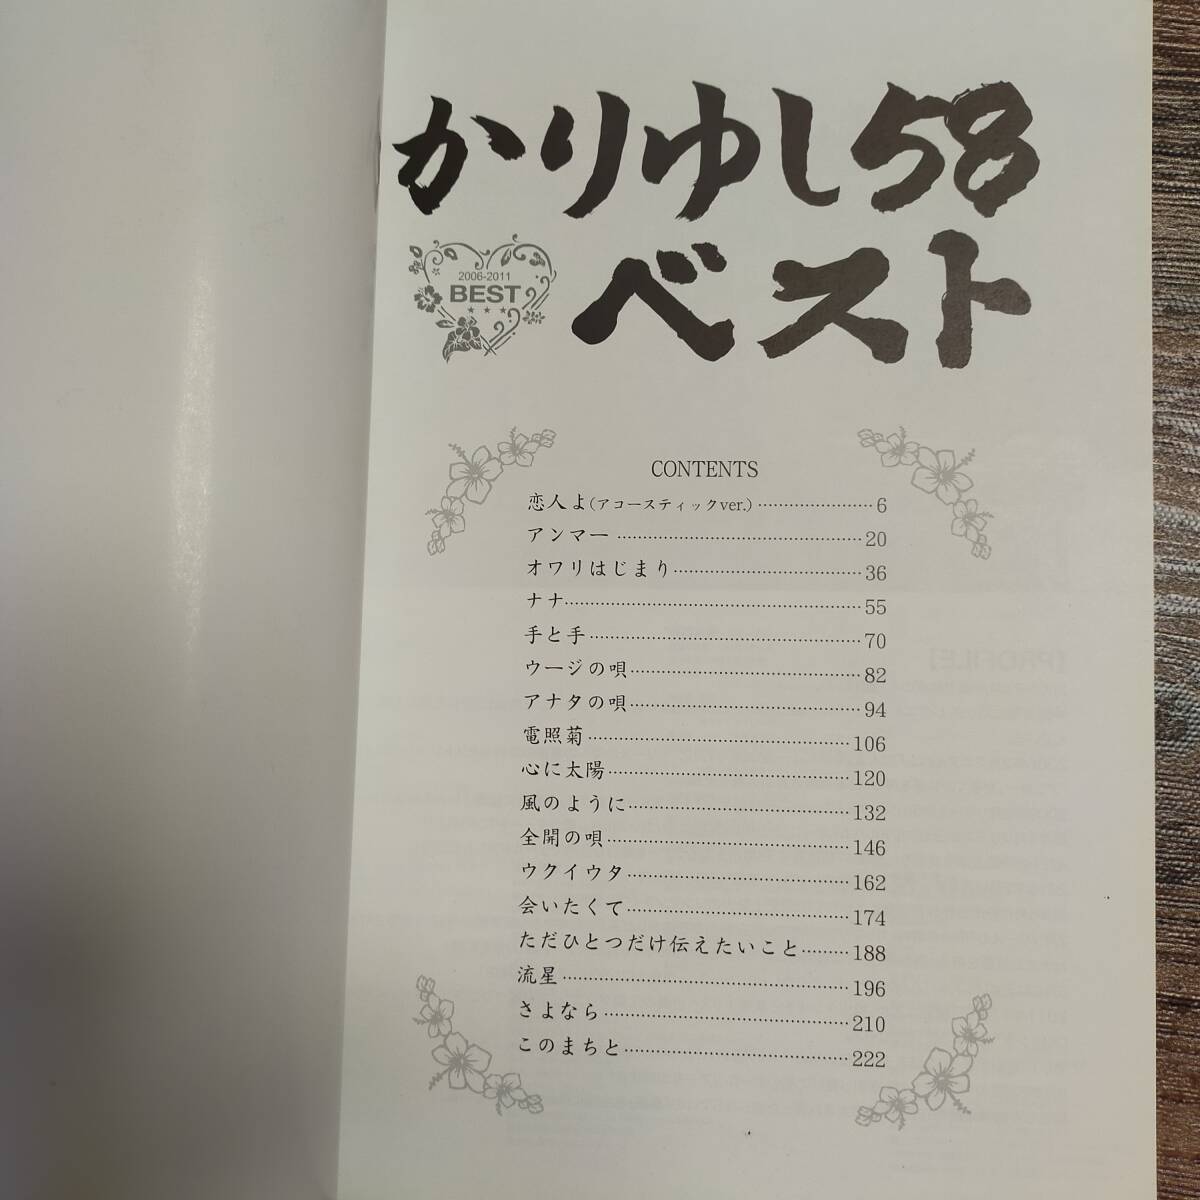 かりゆし58
2006-2011
BEST
★ ★ ★
ベスト
CONTENTS
恋人よ(アコースティックver.)……………………6
アンマー……………………20
オワリはじまり……………………36
ナナ……………………55
手と手……………………70
ウージの唄……………………82
アナタの唄……………………94
電照菊……………………106
心に太陽……………………120
風のように……………………132
全開の唄……………………146
ウクイウタ……………………162
会いたくて……………………174
ただひとつだけ伝えたいこと………188
流星……………………196
さよなら……………………210
このまちと……………………222
[PROFILE]